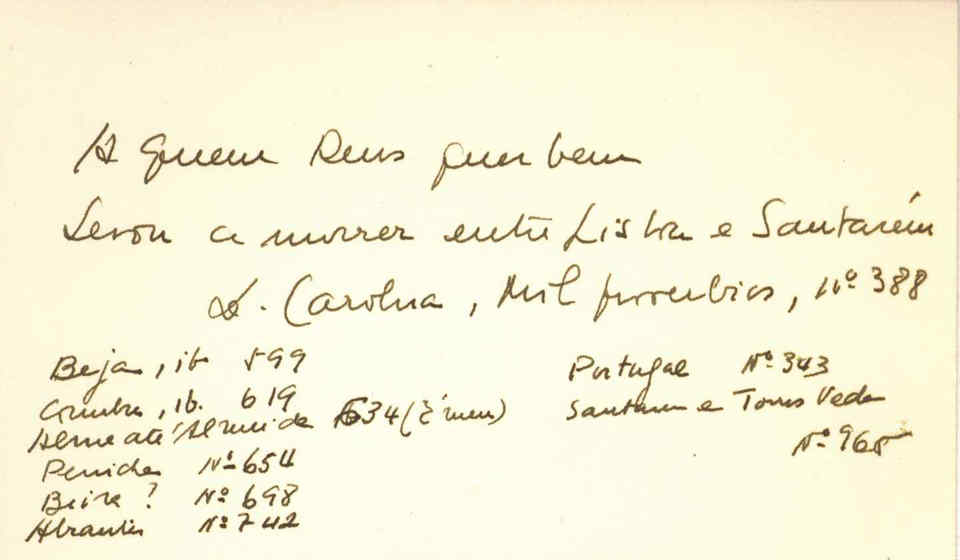 A quem Deus quer bem
Levou a morrer entre Lisboa e Santarém
D. Carolina, Mil proverbios, Nº 388
Beja, ib 599
Coimbra, ib. 619
Alma até Almeida 634 (É meu)
Peniche Nº 654
Beira? Nº 698
Abrantes Nº 742
Portugal Nº 343
Santarem e Torres Vedras
Nº 965